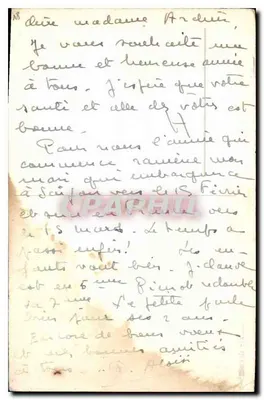 chère madame Arduin,
Je vous souhaite une
bonne et heureuse année
à tous. J'espère que votre
santé et celle des vôtres est
bonne.
Pour nous l'année qui
commence ramène mon
mari qui embarquera
à Saïgon vers le 15 Février
et sera en vers
le 15 mars. Le temps a
passé enfin! Les en-
fants vont bien. J. claude
est en 6ème redouble
sa 7ème Le petite parle
bien pour ses 2 ans.
Encore de bons voeux
et mes bonnes amitiés
à tous
CARTHIL